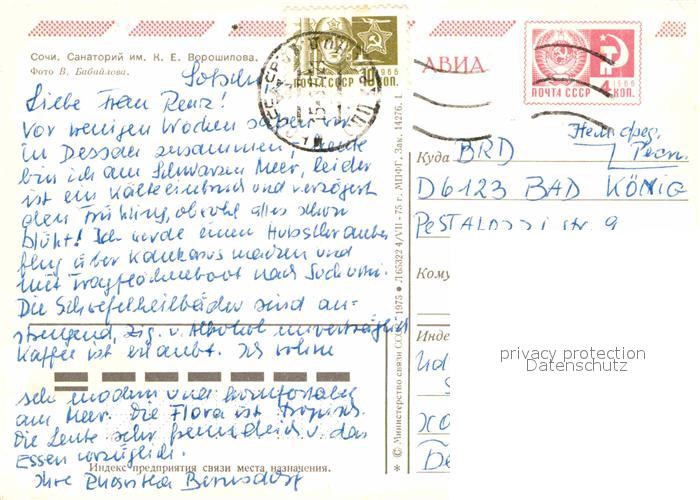 Сочи. Санаторий им. К. Е. Ворошилова.
Фото В. Бабайлова.
АВИА
ПОЧТА СССР 10 КОП.
1966
ПОЧТА СССР 4 КОП.
1966
Liebe Frau Renz!
Vor wenigen Wochen saßen wir
in Dessau zusammen, heute
bin ich am Schwarzen Meer, leider
ist ein Kälteeinbruch und verzögert
den Frühling, obwohl alles schon
blüht! Ich werde einen Hubschrauber
flug über Kaukasus machen und
mit Tragflächenboot nach Suchumi.
Die Schwefelheilbäder sind an-
strengend, Zig. u. Alkohol unverträglich
Kaffee ist erlaubt. Ich wohne
sehr modern und komfortabel
am Meer. Die Flora ist tropisch.
Die Leute sehr freundlich u. das
Essen vorzüglich.
Ihre
Индекс предприятия связи места назначения.
* © Министерство связи СССР. 1975 • Л 65322 4/VII - 75 г. МПФГ. Зак. 14276. 1
Куда BRD
D6123 BAD KÖNIG
PESTALOZZI str 9
Кому
Инде
privacy protection
Datenschutz